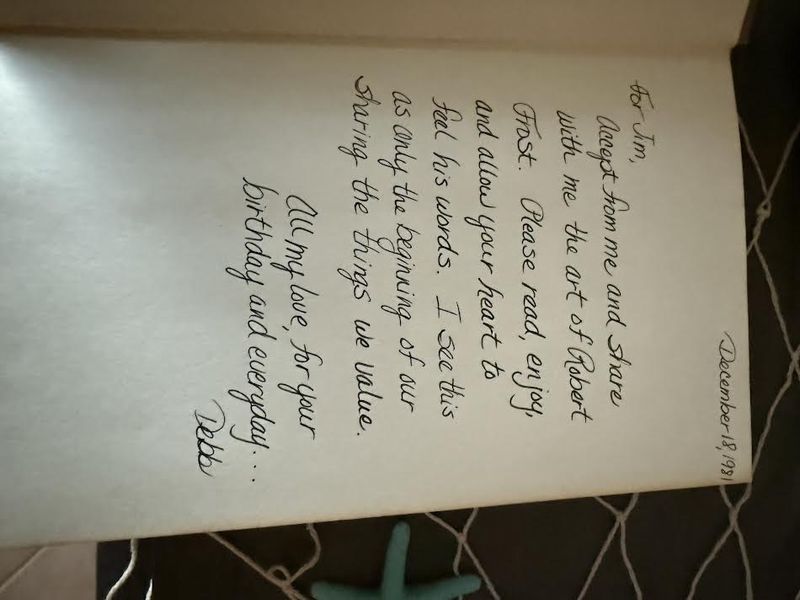 December 18, 1981
For Jim,
Accept from me and share
with me the art of Robert
Frost. Please read, enjoy,
and allow your heart to
feel his words. I see this
as only the beginning of our
sharing the things we value.
All my love, for your
birthday and everyday...
Debb